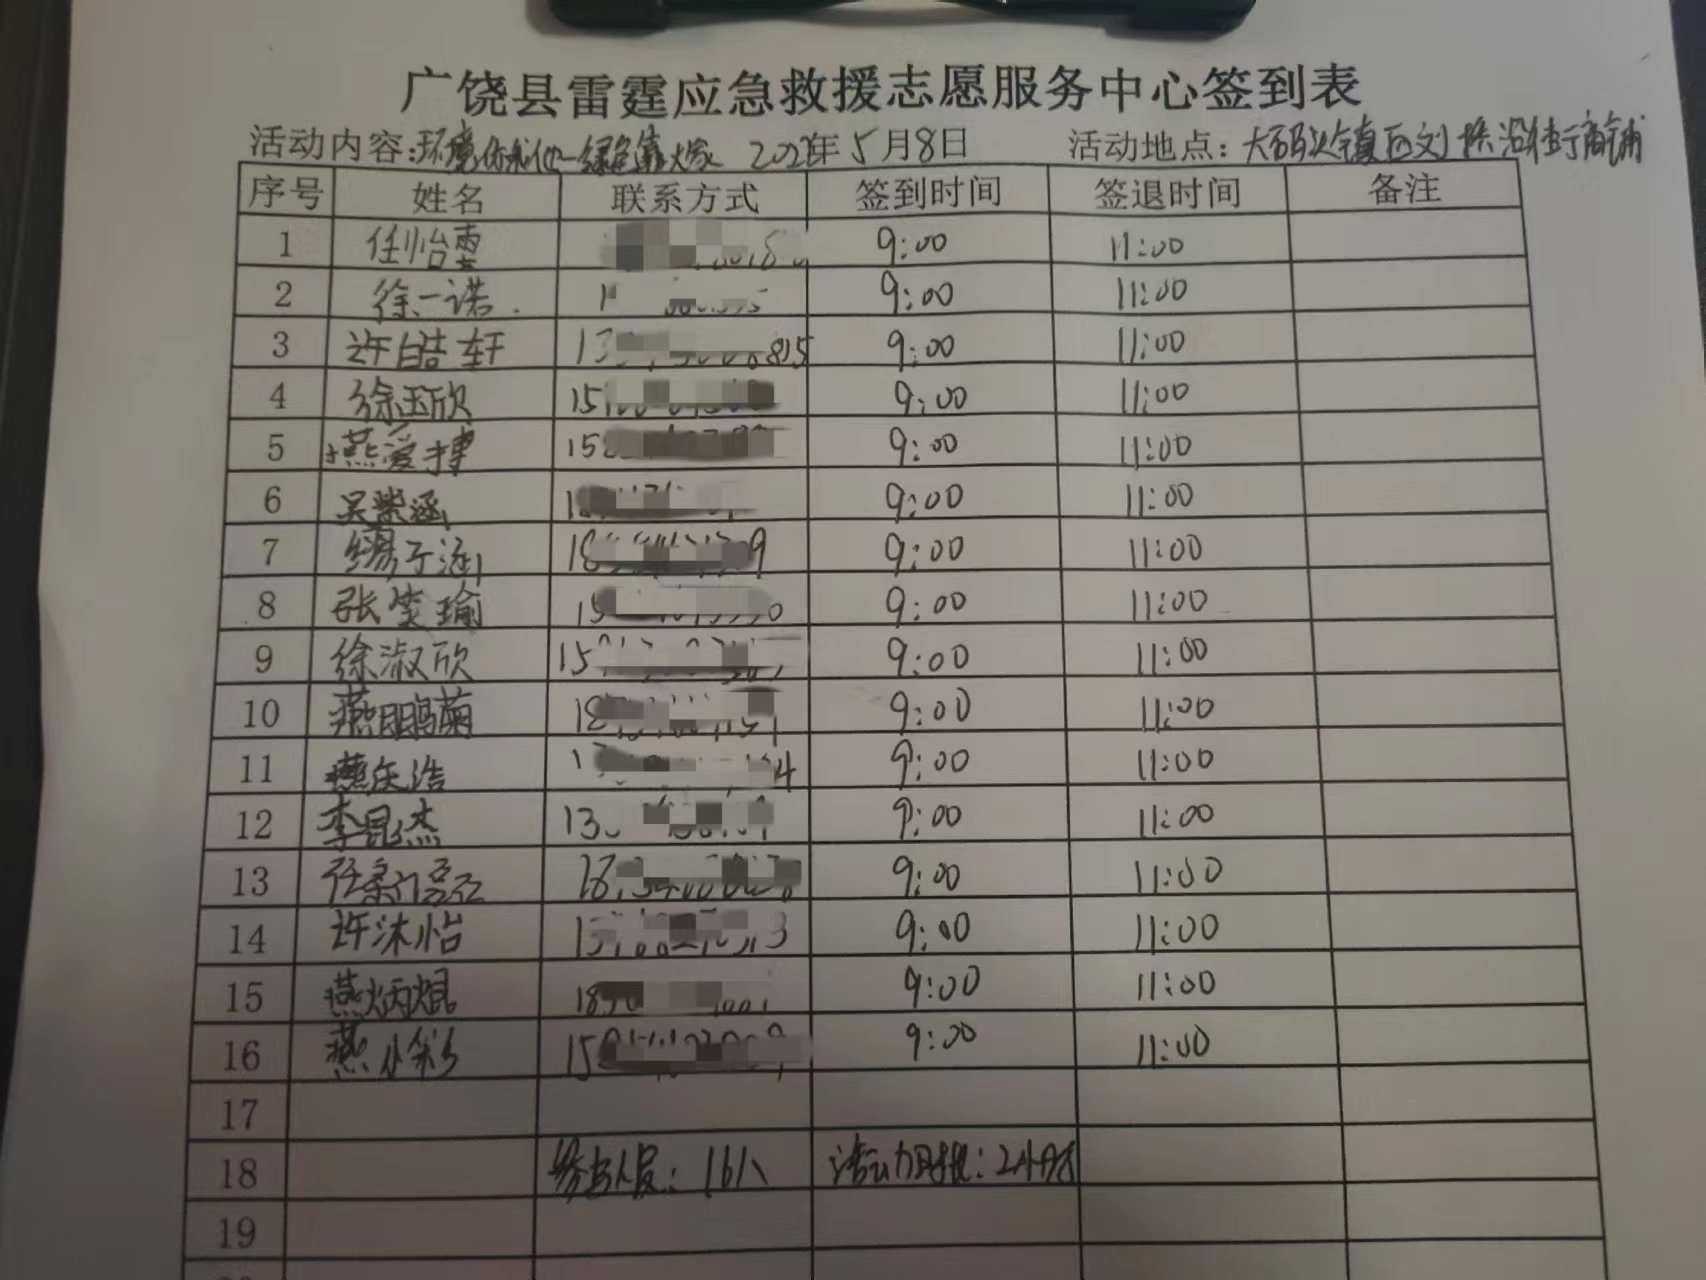 广饶县雷霆应急救援志愿服务中心签到表
活动内容:环境你我他一绿色靠大家 2022年5月8日 活动地点:大码头镇西刘桥沿街商铺
序号 姓名 联系方式 签到时间 签退时间 备注
1 任怡雯 9:00 11:00
2 徐一诺 1 9:00 11:00
3 许皓轩 13 815 9:00 11:00
4 徐玉欣 15 9:00 11:00
5 燕爱博 158 9:00 11:00
6 吴紫涵 18 9:00 11:00
7 缪子涵 18 9 9:00 11:00
8 张笑瑜 15 0 9:00 11:00
9 徐淑欣 15 9:00 11:00
10 燕鹏菊 18 9:00 11:00
11 燕庆浩 1 4 9:00 11:00
12 李昆杰 13 9:00 11:00
13 任 9:00 11:00
14 许沐怡 13 3 9:00 11:00
15 燕炳焜 18 9:00 11:00
16 燕小彩 15 9:00 11:00
17
18 参与人员:16人 活动时长:2小时
19